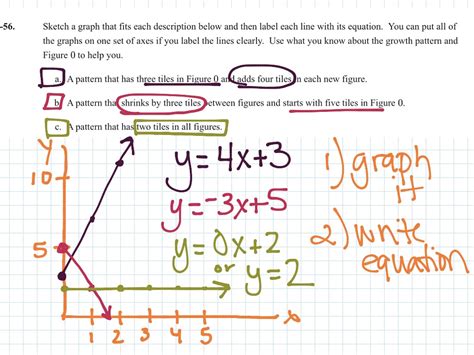 -56. Sketch a graph that fits each description below and then label each line with its equation. You can put all of
the graphs on one set of axes if you label the lines clearly. Use what you know about the growth pattern and
Figure 0 to help you.
a. A pattern that has three tiles in Figure 0 and adds four tiles in each new figure.
b. A pattern that shrinks by three tiles between figures and starts with five tiles in Figure 0.
c. A pattern that has two tiles in all figures.
y
10
5
1 2 3 4 5
x
y=4x+3
y=-3x+5
y=0x+2
or y=2
1) graph
it
2) write
equation